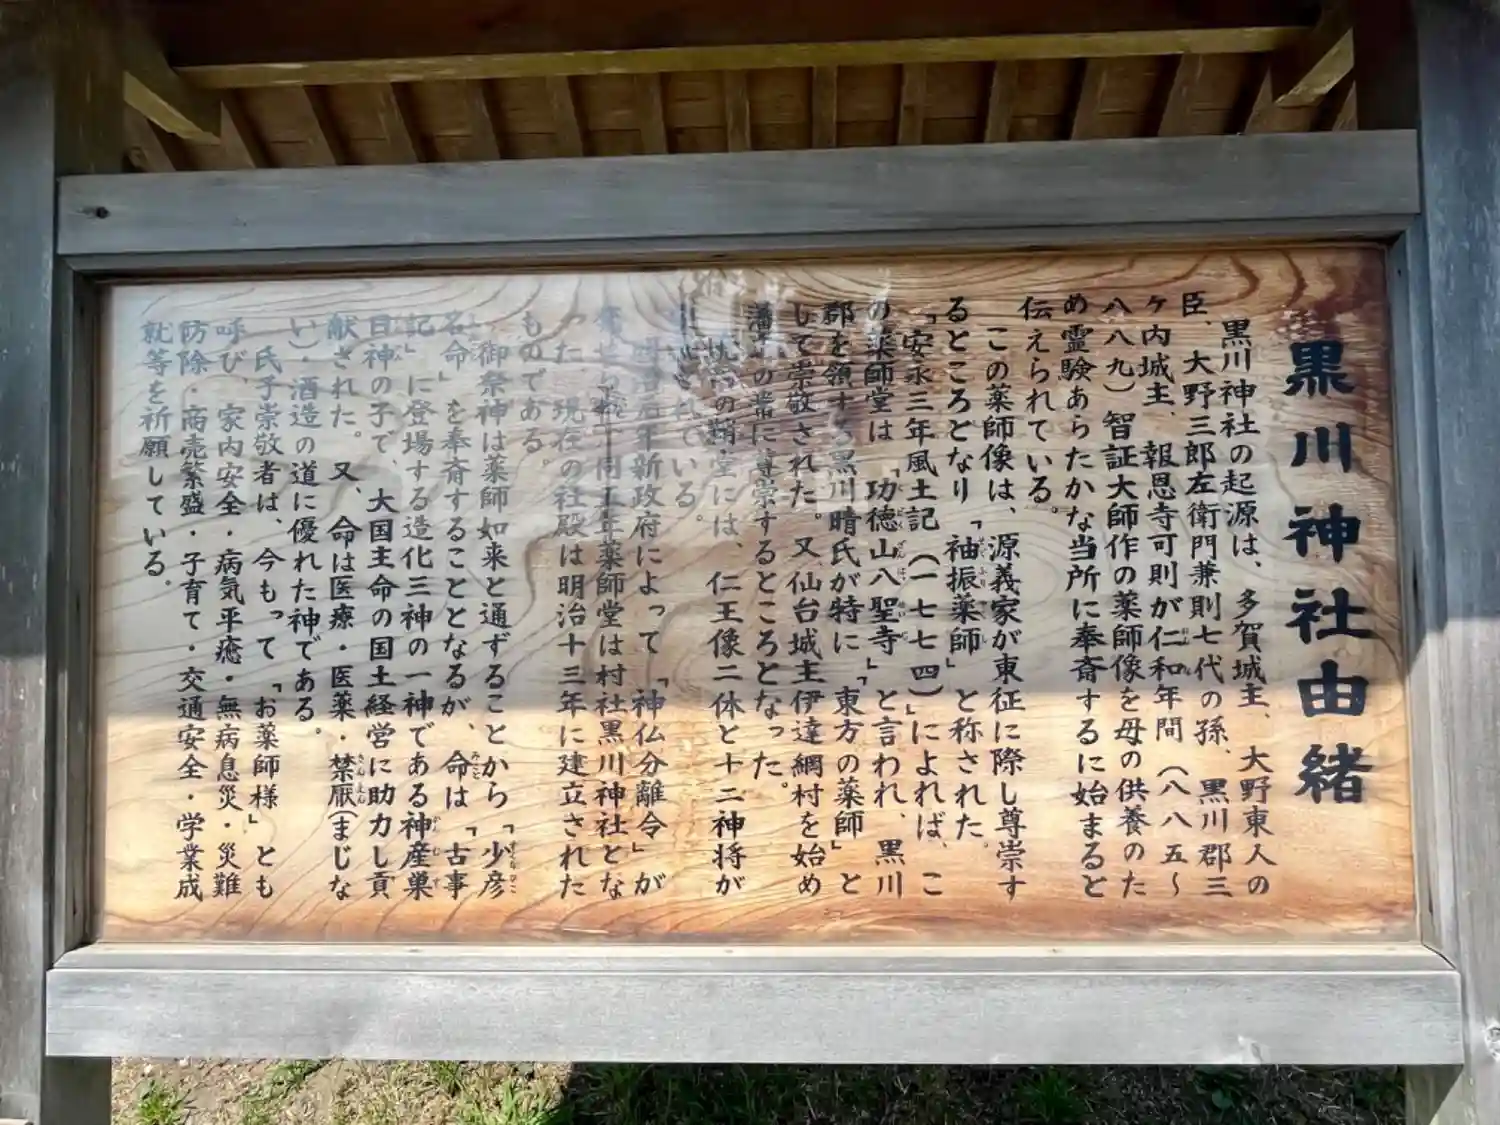 黒川神社由緒
黒川神社の起源は、多賀城主、大野東人の
臣、大野三郎左衛門兼則七代の孫、黒川郡三
ヶ内城主、報恩寺可則が仁和年間（八八五～
八八九）智証大師作の薬師像を母の供養のた
め霊験あらたかな当所に奉斎するに始まると
伝えられている。
この薬師像は、源義家が東征に際し尊崇す
るところとなり「袖振薬師」と称された。
「安永三年風土記（一七七四）」によれば、こ
の薬師堂は「功徳山八聖寺」と言われ、黒川
郡を領する黒川晴氏が特に「東方の薬師」と
して崇敬された。又、仙台城主伊達綱村を始め
藩主の常に尊崇するところとなった。
の鞘堂には、仁王像二体と十二神将が
されている。
明治元年新政府によって「神仏分離令」が
同五年薬師堂は村社黒川神社とな
った。現在の社殿は明治十三年に建立された
ものである。
御祭神は薬師如来と通ずることから「少彦
名命」を奉斎することとなるが、命は「古事
記」に登場する造化三神の一神である神産巣
日神の子で、大国主命の国土経営に助力し貢
献された。又、命は医療・医薬・禁厭（まじな
い）・酒造の道に優れた神である。
氏子崇敬者は、今もって「お薬師様」とも
呼び、家内安全・病気平癒・無病息災・災難
防除・商売繁盛・子育て・交通安全・学業成
就等を祈願している。